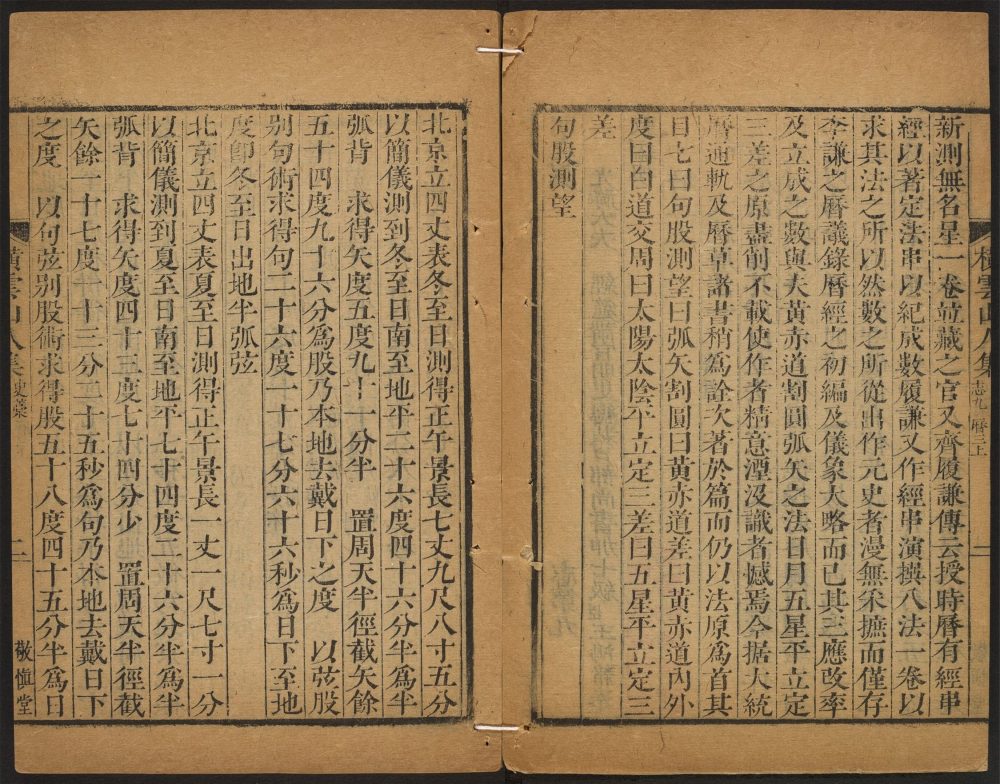 新測無名星一卷並藏之官又齊履謙傳云授時曆有經串
經以著定法串以紀成數履謙又作經串演撰八法一卷以
求其法之所以然數之所從出作元史者漫無采摭而僅存
李謙之曆議錄曆經之初編及儀象大略而已其三應改率
及立成之數與夫黃赤道割圓弧矢之法日月五星平立定
三差之原盡削不載使作者精意湮沒識者憾焉今据大統
曆通軌及曆草諸書稍為詮次著於篇而仍以法原為首其
目七曰句股測望曰弧矢割圓曰黃赤道差曰黃赤道內外
度曰白道交周曰太陽太陰平立定三差曰五星平立定三
差
句股測望
橫雲山人集 志九 曆三上 一
北京立四丈表冬至日測得正午景長七丈九尺八寸五分
以簡儀測到冬至日南至地平二十六度四十六分半為半
弧背 求得矢度五度九十一分半 置周天半徑截矢餘
五十四度九十六分為股乃本地去戴日下之度 以弦股
別句術求得句二十六度一十七分六十六秒為日下至地
度卽冬至日出地半弧弦
北京立四丈表夏至日測得正午景長一丈一尺七寸一分
以簡儀測到夏至日南至地平七十四度二十六分半為半
弧背 求得矢度四十三度七十四分少 置周天半徑截
矢餘一十七度一十三分二十五秒為句乃本地去戴日下
之度 以句弦別股術求得股五十八度四十五分半為日
橫雲山人集 史藁 二 敬慎堂